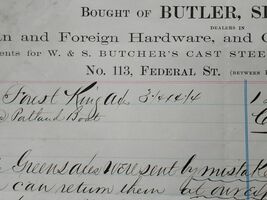 BOUGHT OF BUTLER, SI
DEALERS IN
an and Foreign Hardware, and C
ents for W. & S. BUTCHER'S CAST STEE
No. 113, FEDERAL ST. (BETWEEN
Forest King
Portland Boat
Greens ales were sent by mistake
can return them at our ex